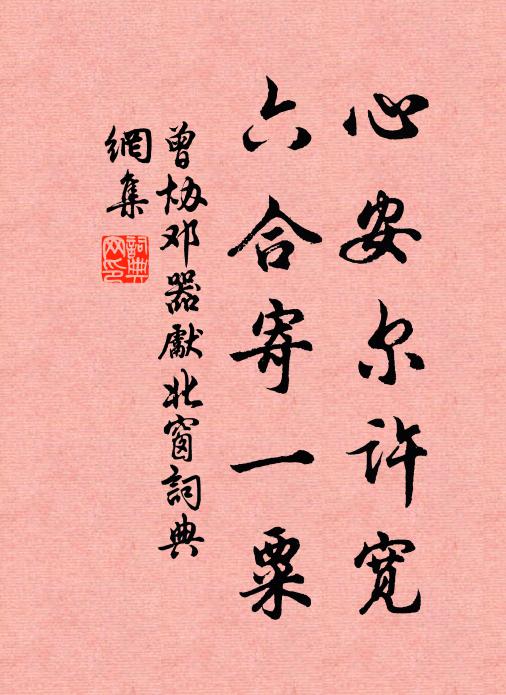 心安尔许宽
六合寄一粟
曾协邓器獻北窗詞典
網集
詞典
网印